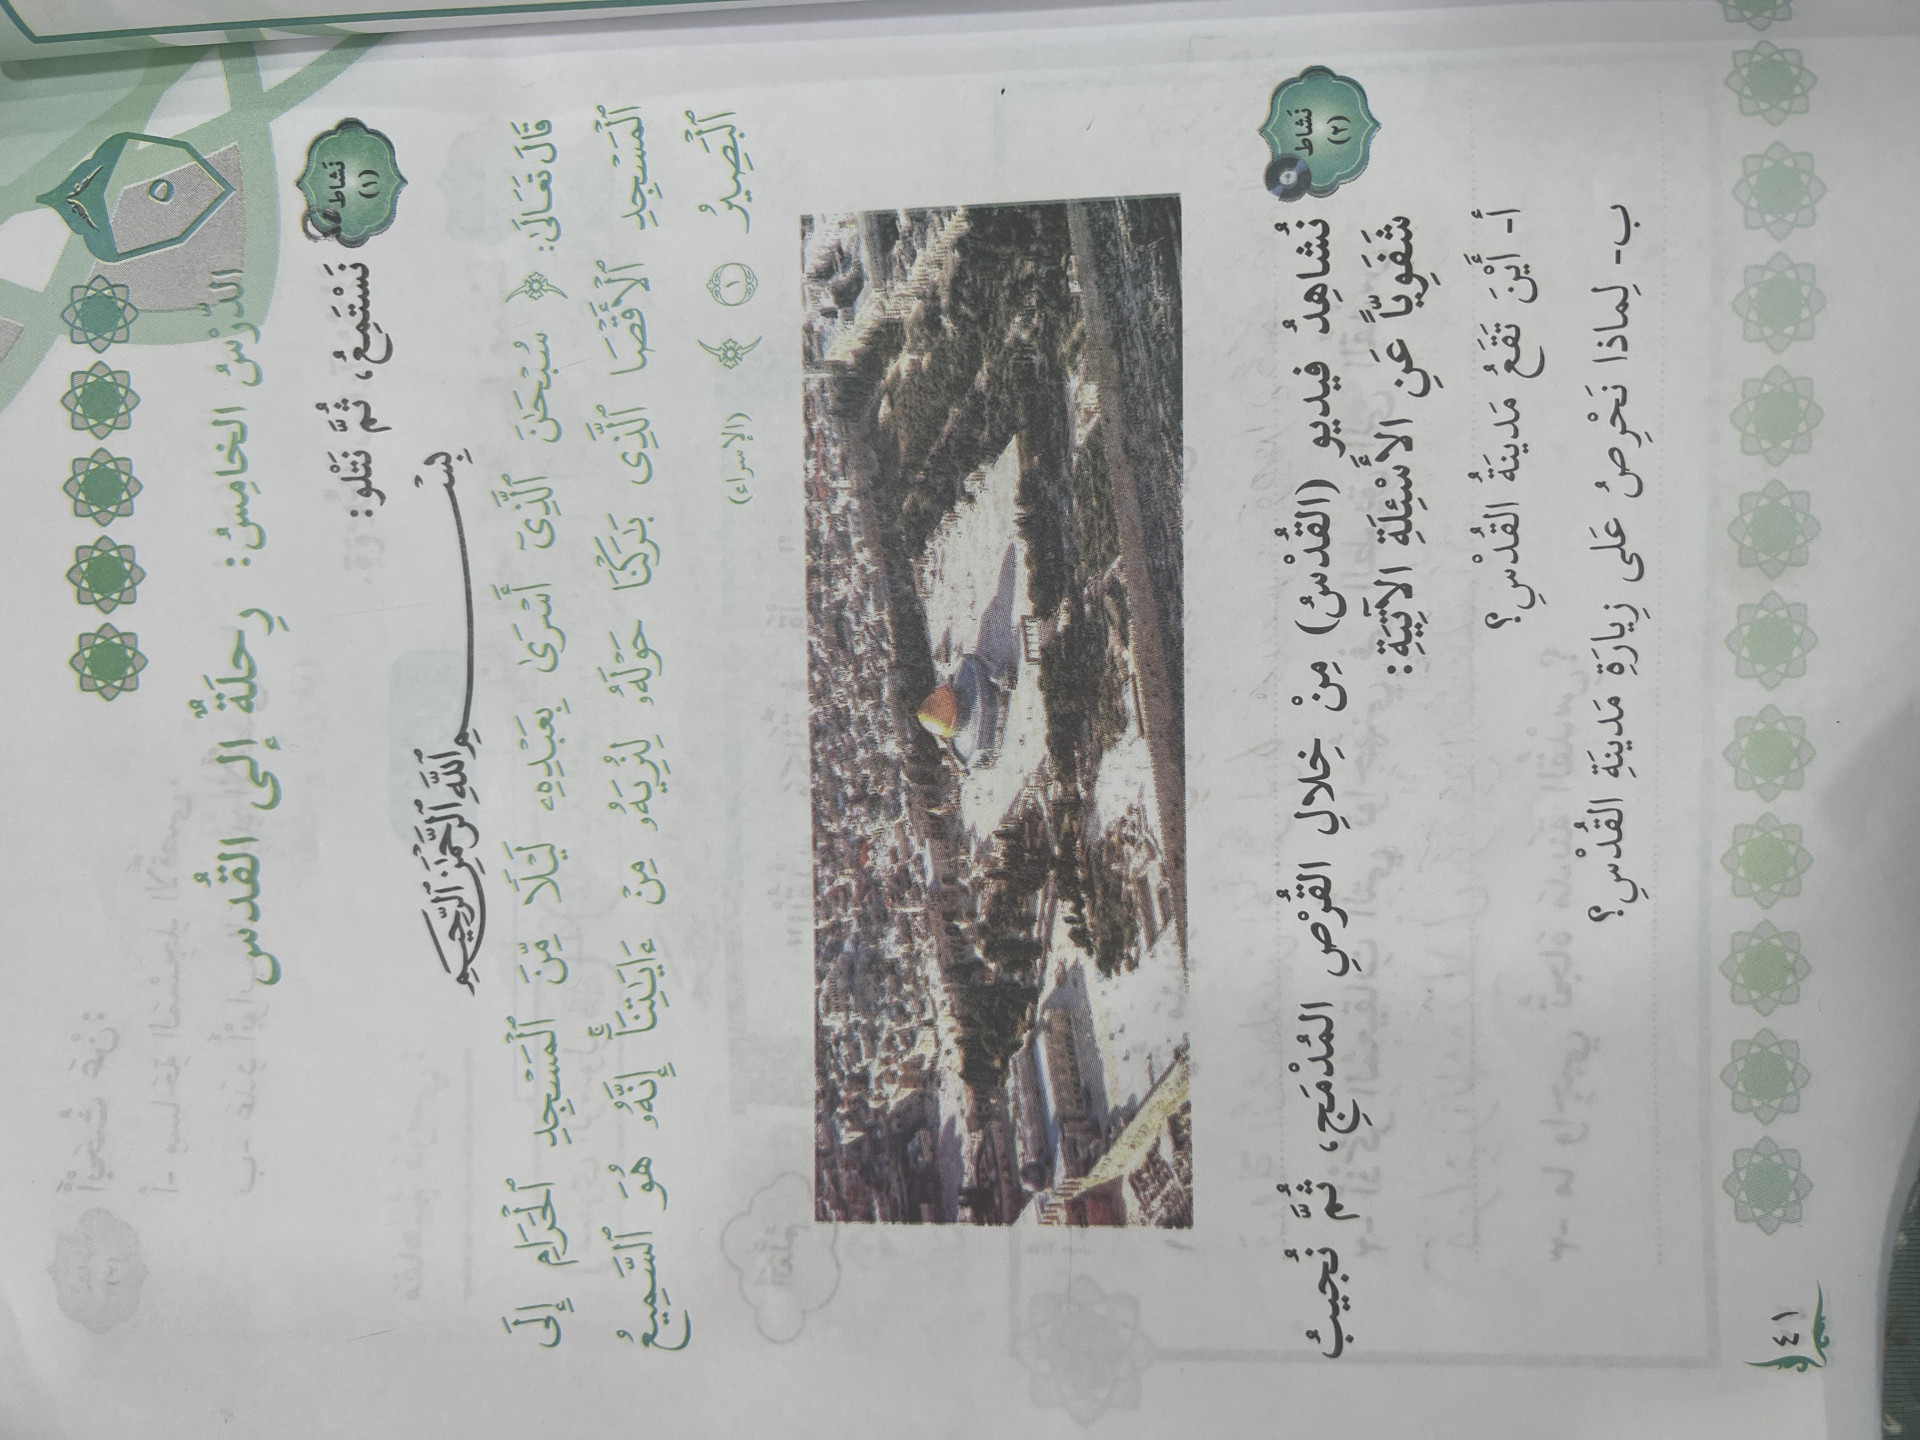 ٥
الدَّرْسُ الخامِسُ: رِحلَةٌ إلى القُدس
نَشاط
(١)
نَسْتَمِعُ، ثُمَّ نَتْلو:
بِسْمِ ٱللَّهِ ٱلرَّحْمَٰنِ ٱلرَّحِيمِ
قَالَ تَعَالَىٰ: ﴿ سُبْحَٰنَ ٱلَّذِىٓ أَسْرَىٰ بِعَبْدِهِۦ لَيْلًا مِّنَ ٱلْمَسْجِدِ ٱلْحَرَامِ إِلَى
ٱلْمَسْجِدِ ٱلْأَقْصَا ٱلَّذِى بَٰرَكْنَا حَوْلَهُۥ لِنُرِيَهُۥ مِنْ ءَايَٰتِنَآ إِنَّهُۥ هُوَ ٱلسَّمِيعُ
ٱلْبَصِيرُ ١ ﴾ (الإسراء)
نَشاط
(٢)
نُشاهِدُ فيديو (القُدْسُ) مِنْ خِلالِ القُرْصِ المُدْمَجِ، ثُمَّ نُجيبُ
شَفَوِيّاً عَنِ الأَسْئِلَةِ الآتِيَةِ:
أ- أَيْنَ تَقَعُ مَدينَةُ القُدْسِ؟
ب- لِماذا نَحْرِصُ عَلى زِيارَةِ مَدينَةِ القُدْسِ؟
٤١